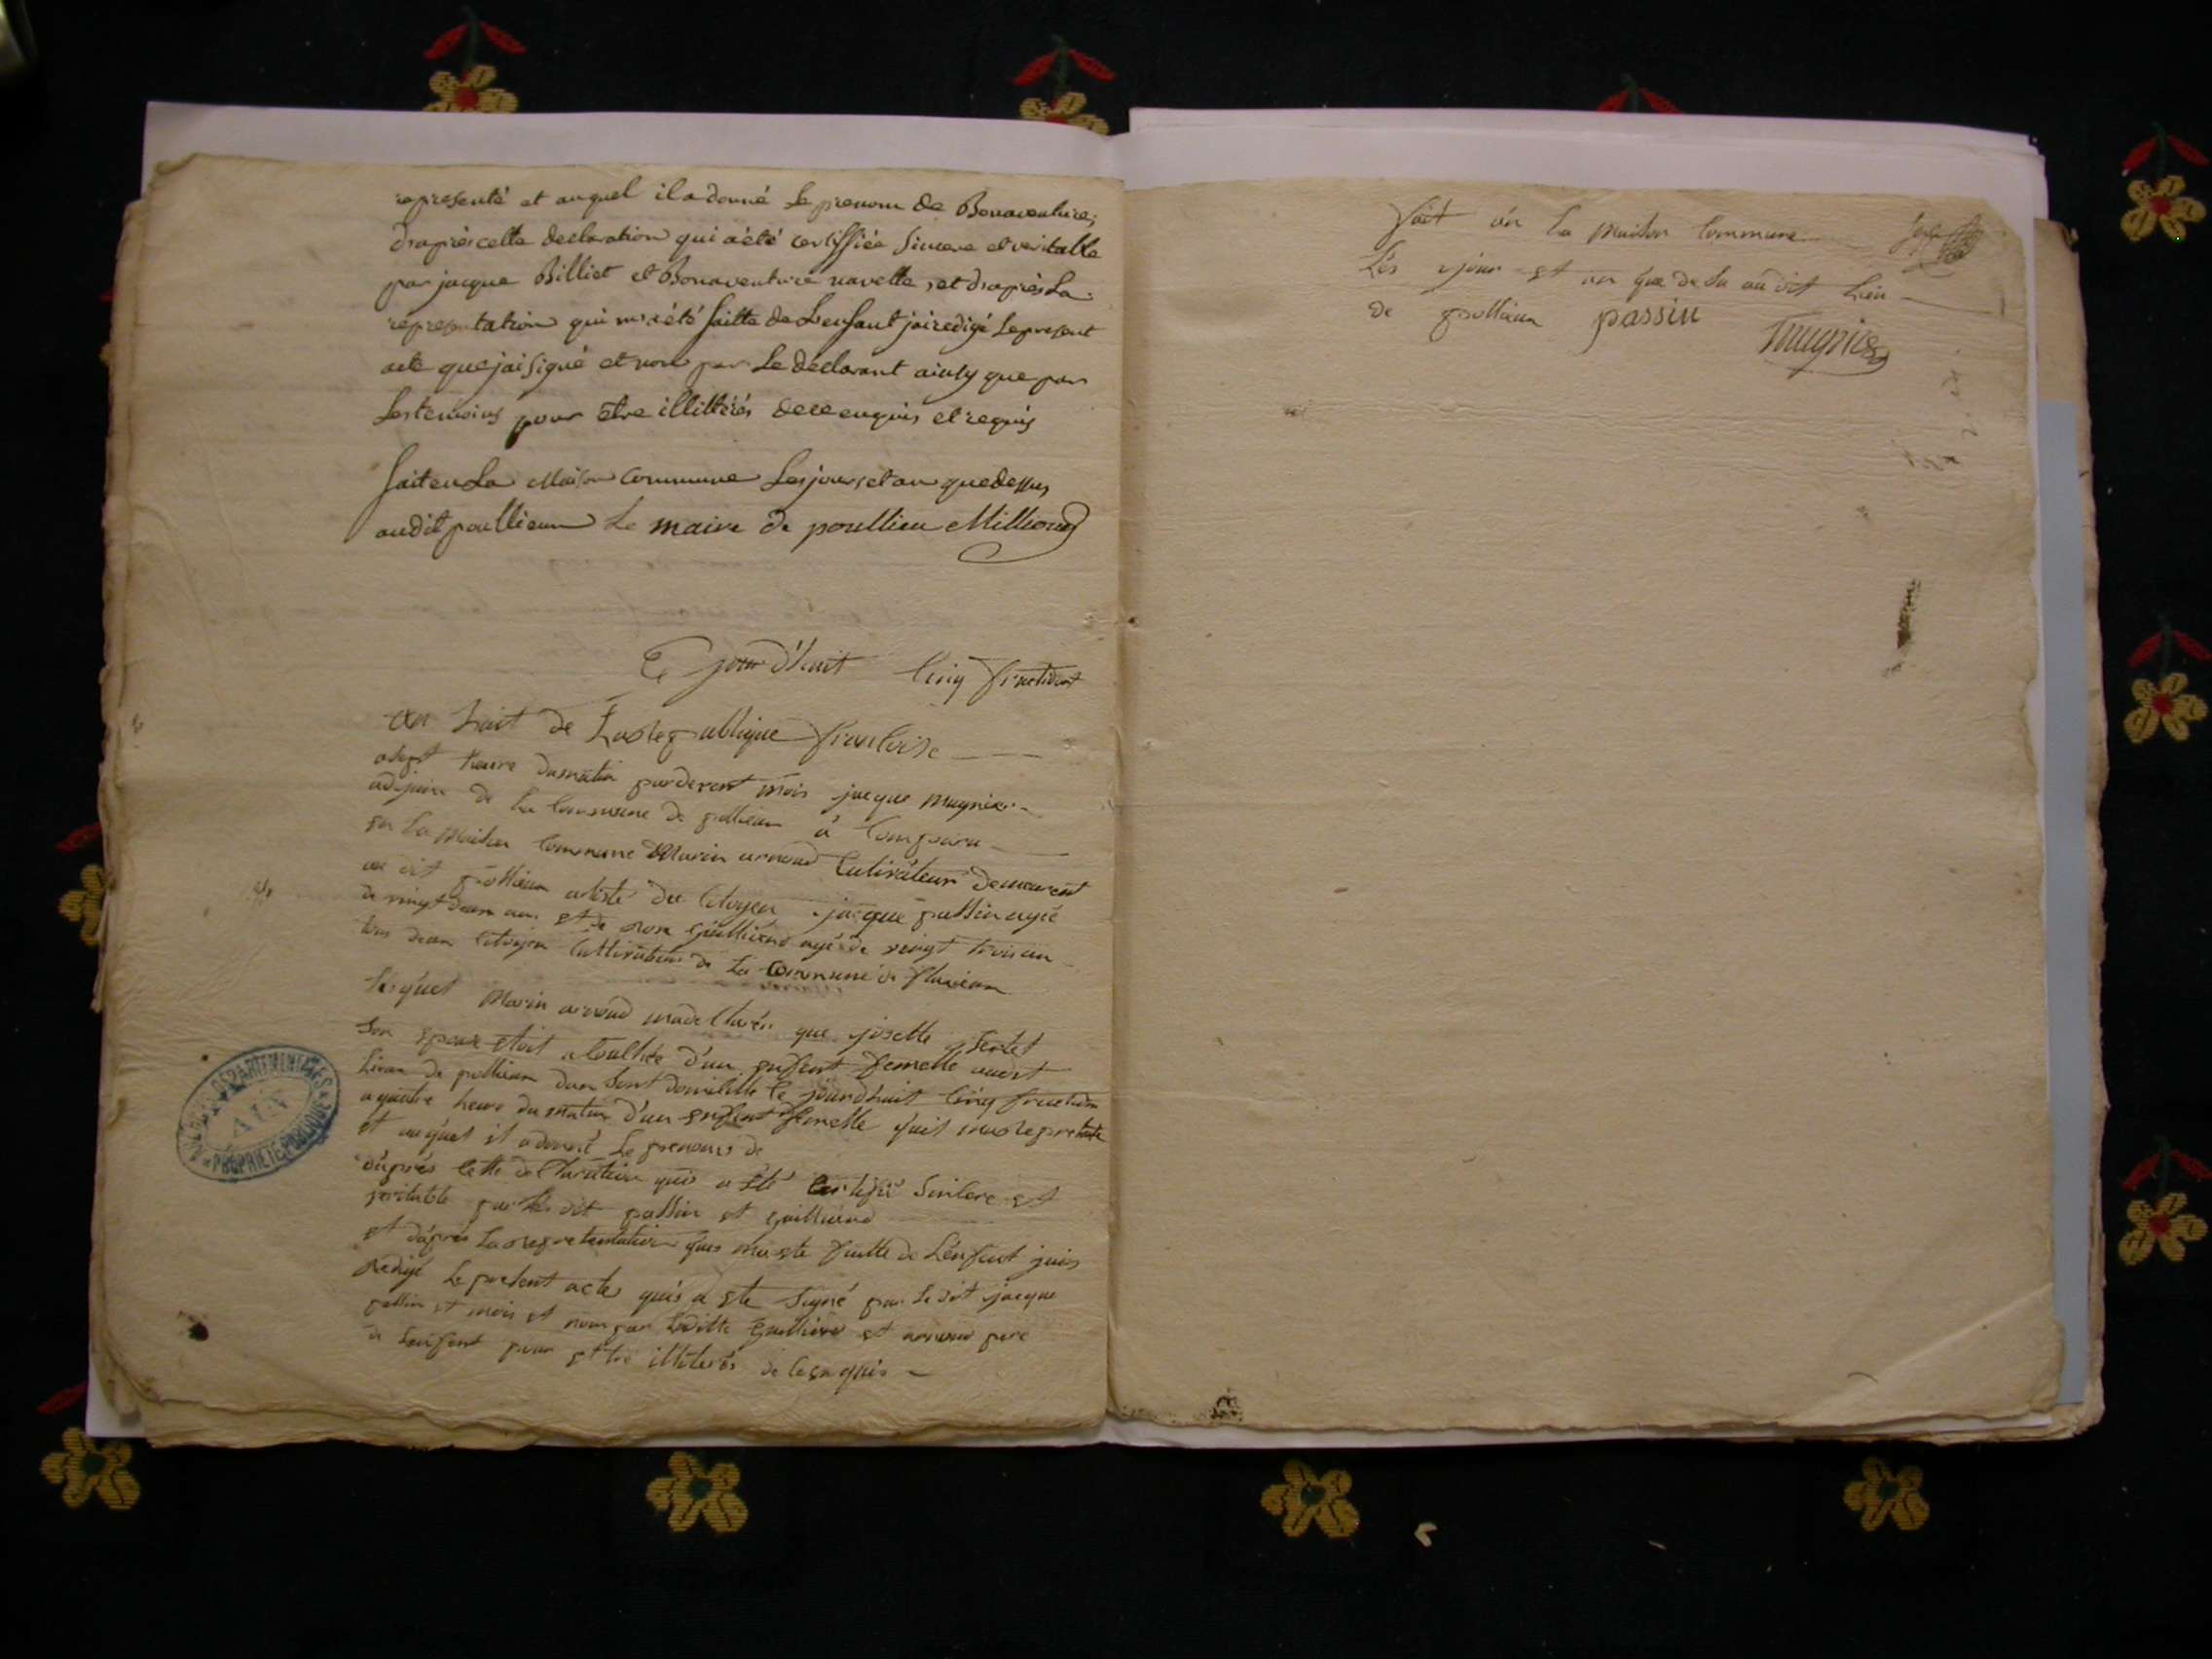 représenté et auquel il a donné le prenom de Bonaventure;
d'après cette declaration qui a été certiffiée sincere et veritable
par jacque Billiet et Bonaventure navette, et d'après la
representation qui m'a été faitte de L'enfant j'ai redigé le present
acte que j'ai signé et non par le déclarant ainsy que par
les temoins pour être illittérés de ce enquis et requis
fait en La Maison commune les jours et an que dessus
audit poullieu Le maire de poullieu Milliond
Ce jourd'huit cinq fructidort
an huit de La republique francoise
a sept heure du matin par devent mois jacque mugnier
adjoint de la commune de pollieu à comparu
en la maison commune Marin arnoud cultivateur demeurent
au dit pollieu assisté du citoyen jacque passin agée
de vingt deux ans et de rose guillierd agée de veingt trois an
tous deux citoyen cultivateur de la commune de
lesquel Marin arnoud ma declarés que josette
son epouse etoit acouchée d'un enfent femelle audit
lieux de pollieu dans sont domicille le jourd'huit cinq fructidor
a quatre heure du matin d'un enfent femelle qu'il ma representé
et auquel il a donné le prenoms de
d'après cette declaration qui a été certifié sincere et
veritable par les dit passin et guillierd
et d'après la representation quis ma ete faitte de L'enfent j'ais
redigé le present acte quis a ete signé par le dit jacque
passin et mois et nom par laditte guillierd et arnoud pere
de lenfent pour ettre illiterés de ce enquis
Fait en la maison commune
Les jour et an que de su au dit lieu
de pollieu passin
mugnier
ARCHIVES DÉPARTEMENTALES
AIN
PROPRIÉTÉ PUBLIQUE